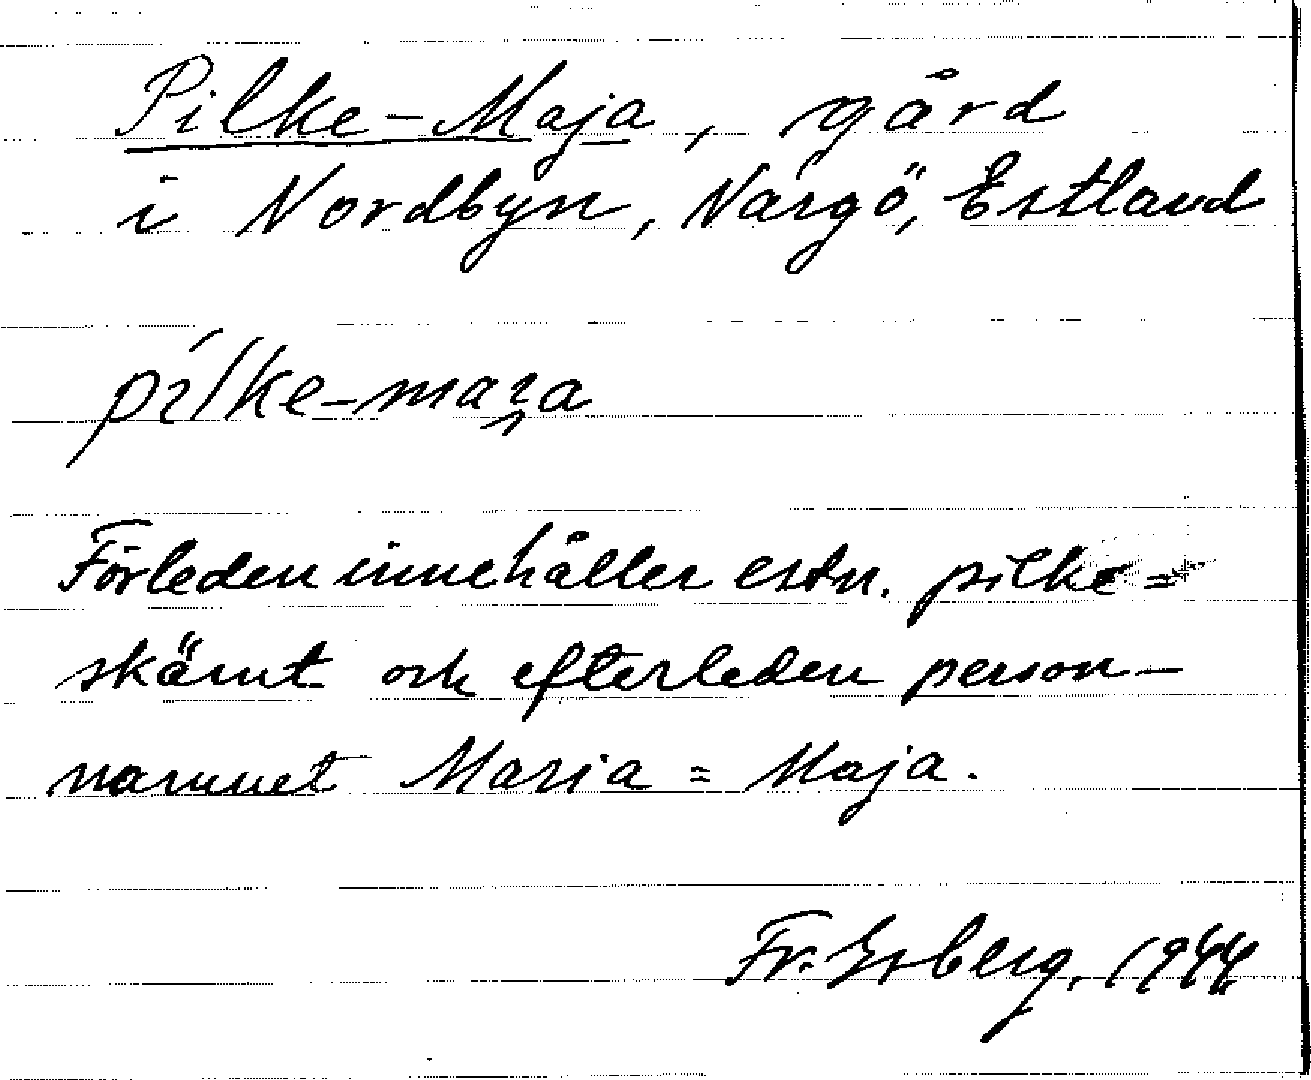 Pilke-Maja, gård
i Nordbyn, Nargö, Estland
pílke-maı̯a
Förleden innehåller estn. pilke =
skämt och efterleden person-
namnet Maria = Maja.
Fr. Erberg, 1944